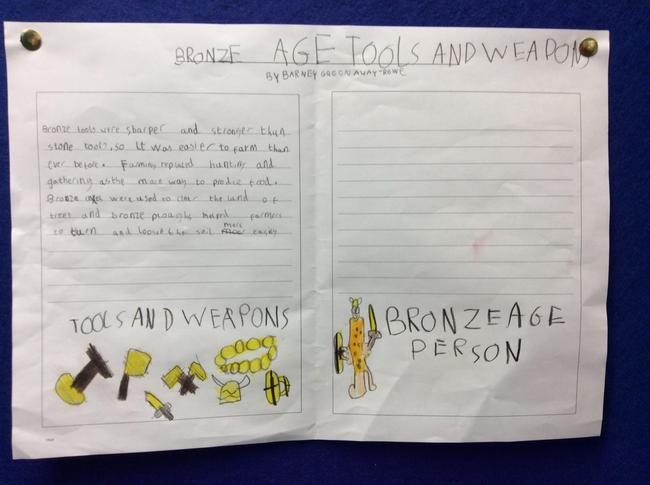 BRONZE AGE TOOLS AND WEAPONS
BY BARNEY GREENAWAY-ROWE
Bronze tools were sharper and stronger than
stone tools, so it was easier to farm than
ever before. Farming replaced hunting and
gathering as the main way to produce food.
Bronze axes were used to clear the land of
trees and bronze ploughs helped farmers
to turn and loosen the soil more easily
TOOLS AND WEAPONS
BRONZE AGE
PERSON